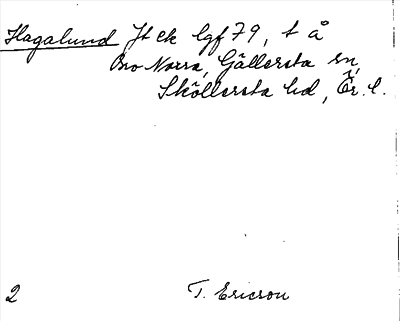 Hagalund Jt ek lgf 79, t å
Bro Norra, Gällersta sn,
Sköllersta hd, Ör. l.
2 T. Ericson